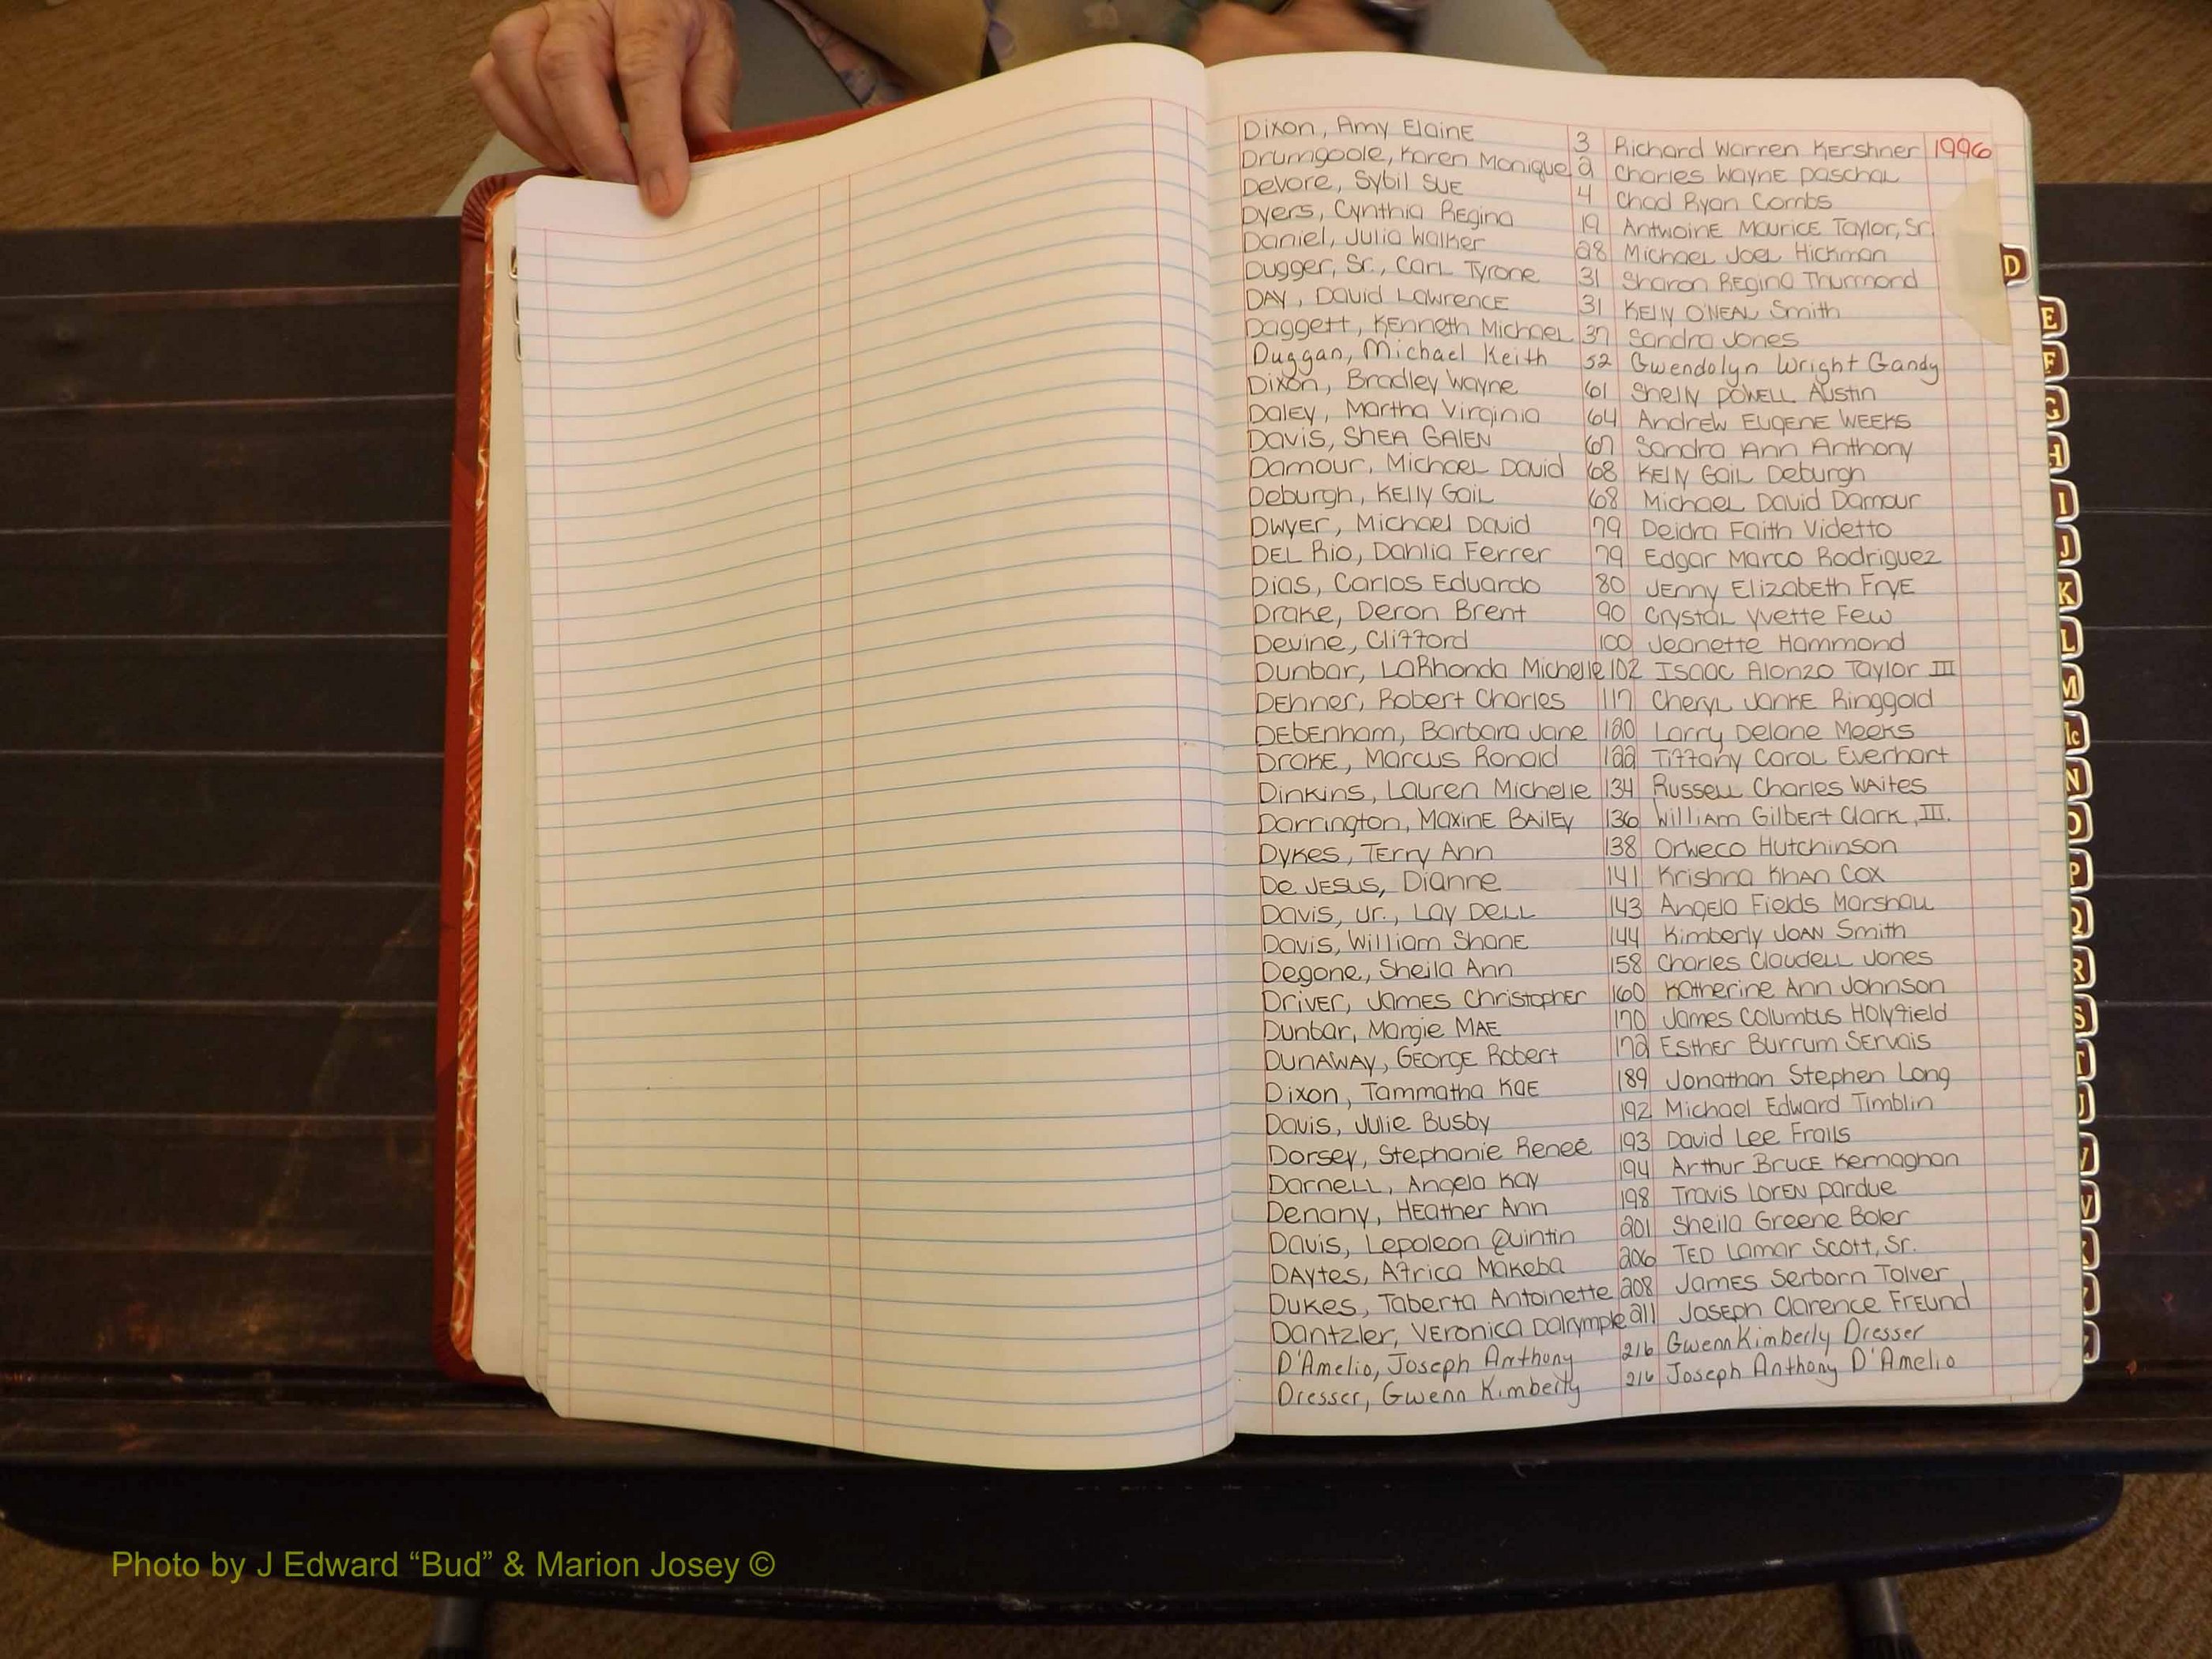 Dixon, Amy Elaine 3 Richard Warren Kershner 1996
Drumgoole, Karen Monique 2 Charles Wayne Paschal
Devore, Sybil Sue 4 Chad Ryan Combs
Dyers, Cynthia Regina 19 Antwoine Maurice Taylor, Sr.
Daniel, Julia Walker 28 Michael Joel Hickman
Dugger, Sr., Carl Tyrone 31 Sharon Regina Thurmond
Day, David Lawrence 31 Kelly O'Neal Smith
Daggett, Kenneth Michael 37 Sandra Jones
Duggan, Michael Keith 52 Gwendolyn Wright Gandy
Dixon, Bradley Wayne 61 Shelly Powell Austin
Daley, Martha Virginia 64 Andrew Eugene Weeks
Davis, Shea Galen 67 Sandra Ann Anthony
Damour, Michael David 68 Kelly Gail Deburgh
Deburgh, Kelly Gail 68 Michael David Damour
Dwyer, Michael David 79 Deidra Faith Videtto
Del Rio, Dahlia Ferrer 79 Edgar Marco Rodriguez
Dias, Carlos Eduardo 80 Jenny Elizabeth Frye
Drake, Deron Brent 90 Crystal Yvette Few
Devine, Clifford 100 Jeanette Hammond
Dunbar, LaRhonda Michelle 102 Isaac Alonzo Taylor III
Dehner, Robert Charles 117 Cheryl Janke Ringgold
Debenham, Barbara Jane 120 Larry Delane Meeks
Drake, Marcus Ronald 122 Tiffany Carol Everhart
Dinkins, Lauren Michelle 134 Russell Charles Waites
Darrington, Maxine Bailey 136 William Gilbert Clark, III.
Dykes, Terry Ann 138 Orweco Hutchinson
De Jesus, Dianne 141 Krishna Khan Cox
Davis, Jr., Lay Dell 143 Angela Fields Marshall
Davis, William Shane 144 Kimberly Joan Smith
Degone, Sheila Ann 158 Charles Claudell Jones
Driver, James Christopher 160 Katherine Ann Johnson
Dunbar, Margie Mae 170 James Columbus Holyfield
Dunaway, George Robert 172 Esther Burrum Servais
Dixon, Tammatha Kae 189 Jonathan Stephen Long
Davis, Julie Busby 192 Michael Edward Timblin
Dorsey, Stephanie Reneé 193 David Lee Frails
Darnell, Angela Kay 194 Arthur Bruce Kernaghan
Denany, Heather Ann 198 Travis Loren Pardue
Davis, Lepoleon Quintin 201 Sheila Greene Boler
Daytes, Africa Makeba 206 Ted Lamar Scott, Sr.
Dukes, Taberta Antoinette 208 James Serborn Tolver
Dantzler, Veronica Dalrymple 211 Joseph Clarence Freund
D'Amelio, Joseph Anthony 216 Gwenn Kimberly Dresser
Dresser, Gwenn Kimberly 216 Joseph Anthony D'Amelio
D
E
F
G
H
I
J
K
L
M
Mc
N
O
P
Q
R
S
T
U
V
W
Photo by J Edward “Bud” & Marion Josey ©